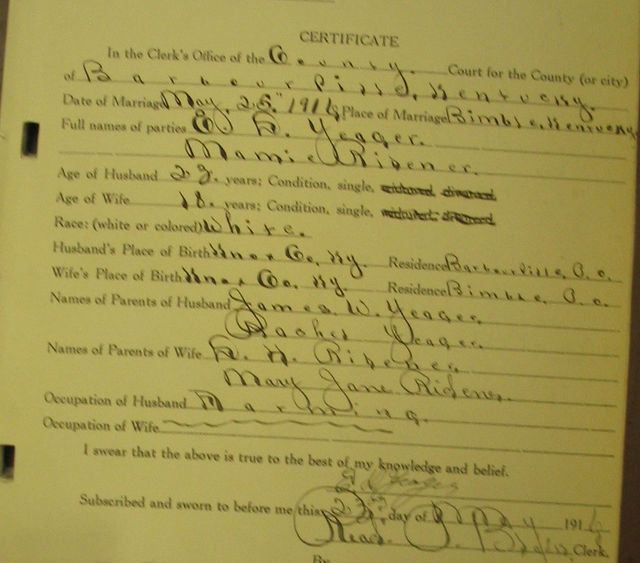 CERTIFICATE
In the Clerk's Office of the County. Court for the County (or city)
of Barbourville, Kentucky.
Date of Marriage May, 25." 1916 Place of Marriage Bimble, Kentucky
Full names of parties E. H. Yeager.
Mamie Ridener.
Age of Husband 23. years; Condition, single, widowed divorced
Age of Wife 18. years; Condition, single, widowed, divorced
Race: (white or colored) White.
Husband's Place of Birth Knox Co, Ky. Residence Barbourville, P. o.
Wife's Place of Birth Knox Co. Ky. Residence Bimble, P. o.
Names of Parents of Husband James W. Yeager.
Rachel Yeager.
Names of Parents of Wife Ridener.
Mary Jane Ridener.
Occupation of Husband Farming.
Occupation of Wife
I swear that the above is true to the best of my knowledge and belief.
Yeager
Subscribed and sworn to before me this 23, day of May 1916
Read P. Clerk.
By